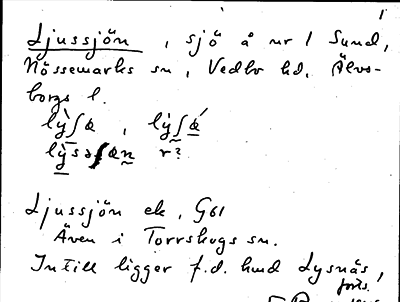 1
Ljussjön, sjö å nr 1 Sund,
Nössemarks sn, Vedbo hd. Älvs-
borgs l.
lỳʃæ, lỳʃǽ
r?
Ljussjön ek, G61
Även i Torrskogs sn.
Intill ligger f.d. hmd Lysnäs,
forts.